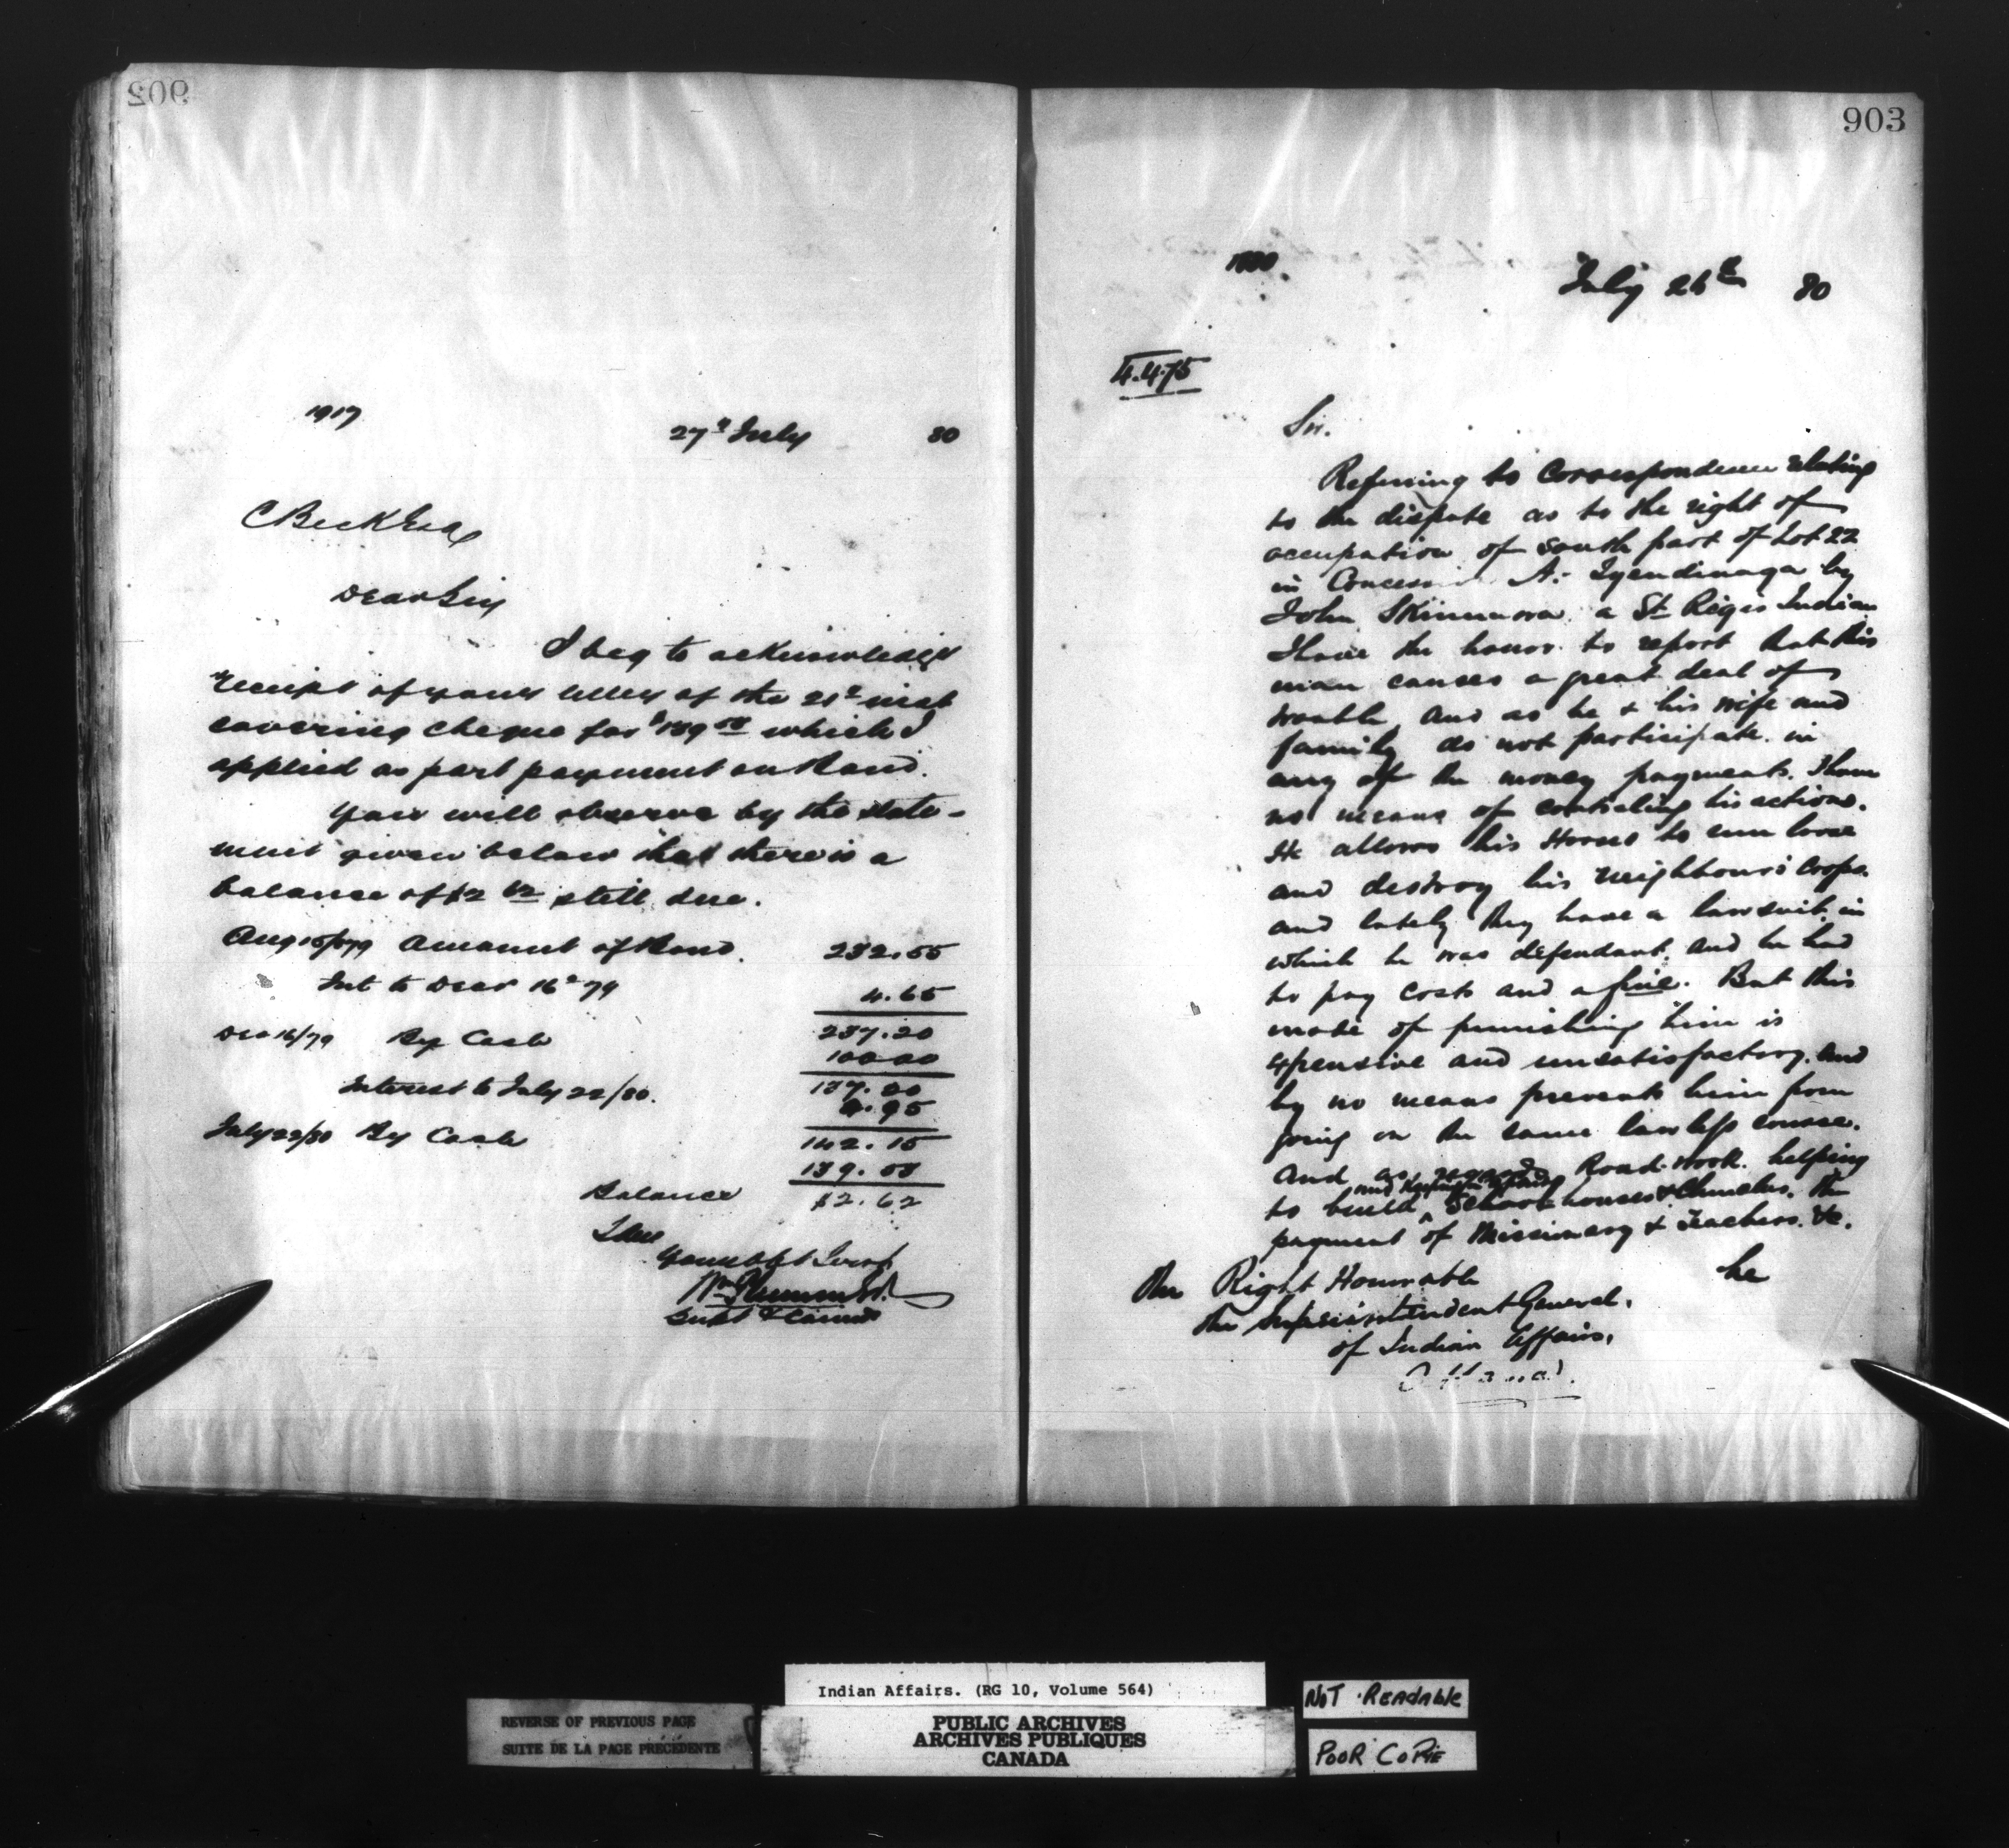 902
1917
27th July 80
C Beck Esq
Dear Sir
I beg to acknowledge
receipt of your letter of the 21st inst
covering cheque for which I
applied as part payment on Bond.
You will observe by the state-
ment given below that there is a
balance of still due.
Aug 15/79 Amount of Bond. 232.55
Int to Decr 16th 79 4.65
237.20
Dec 16/79 By Cash 100.00
137.20
Interest to July 22/80. 4.95
142.15
July 22/80 By Cash
Balance $2.62
I am
Your obt Servt
Wm Plummer
Supt & Commr
903
July 26th 80
Sir.
Referring to Correspondence relating
to the dispute as to the right of
occupation of South part of Lot 22
in Concession A. Tyendinaga by
John a St Regis Indian
I have the honor to report that this
man causes a great deal of
trouble, and as he & his wife and
family do not participate in
any of the money payments. I have
no means of controling his actions.
He allows his Horses to run loose
and destroy his neighbours crops.
and lately they have a lawsuit in
which he was defendant, and he had
to pay costs and a fine. But this
mode of punishing him is
expensive and unsatisfactory. and
by no means prevents him from
going on the same lawless course.
And as regards Road-work. helping
to build and School houses & Churches. the
payment of Missionary & Teachers. &c.
he
The Right Honorable
The Superintendent General.
of Indian Affairs.
Ottawa.
Indian Affairs. (RG 10, Volume 564)
REVERSE OF PREVIOUS PAGE
SUITE DE LA PAGE PRÉCÉDENTE
PUBLIC ARCHIVES
ARCHIVES PUBLIQUES
CANADA
NOT READABLE
POOR COPIE